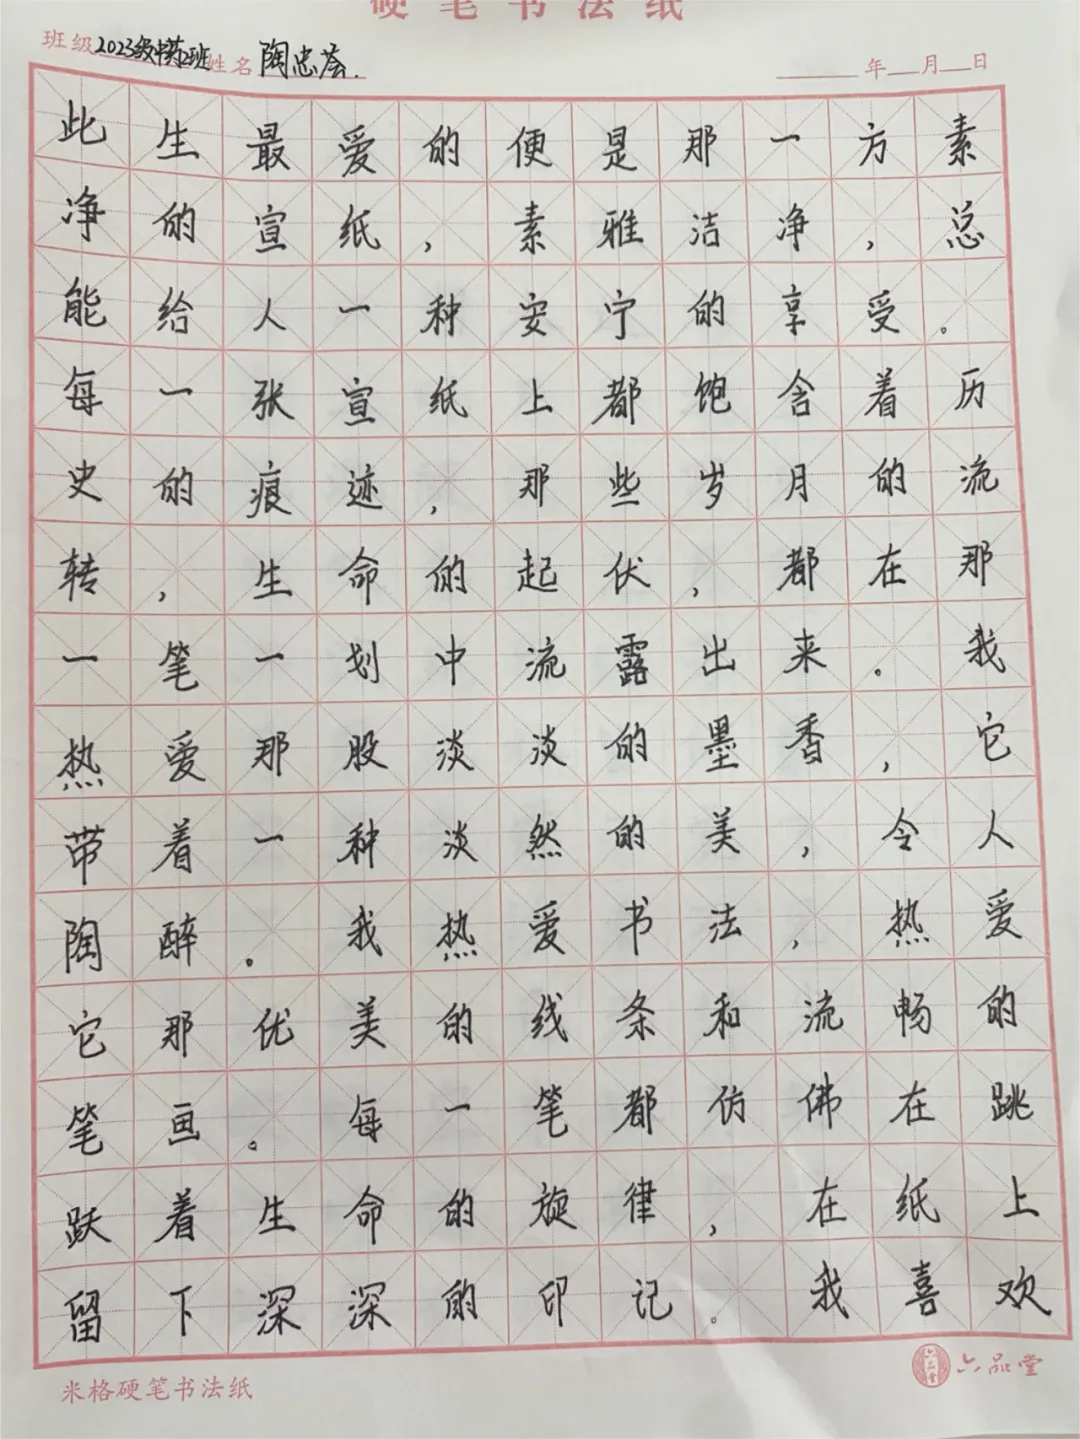 硬笔书法纸
班级 2023级中药2班 姓名 陶忠荟. 年 月 日
此生最爱的便是那一方素
净的宣纸，素雅洁净，总
能给人一种安宁的享受。
每一张宣纸上都饱含着历
史的痕迹，那些岁月的流
转，生命的起伏，都在那
一笔一划中流露出来。我
热爱那股淡淡的墨香，它
带着一种淡然的美，令人
陶醉。我热爱书法，热爱
它那优美的线条和流畅的
笔画。每一笔都仿佛在跳
跃着生命的旋律，在纸上
留下深深的印记。我喜欢
米格硬笔书法纸 六品堂 六品堂